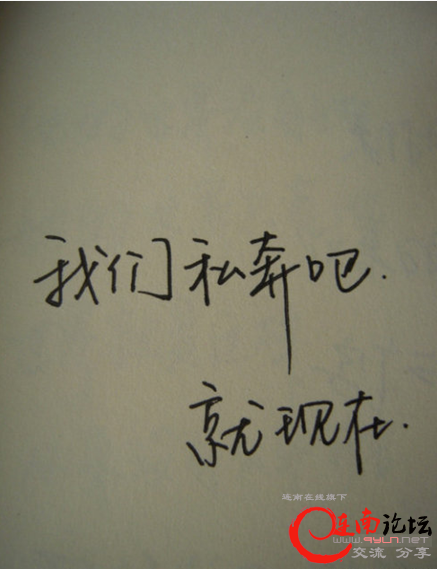 我们私奔吧.
就现在.
连南在线旗下
连南论坛
www.gyln.net
交流 分享